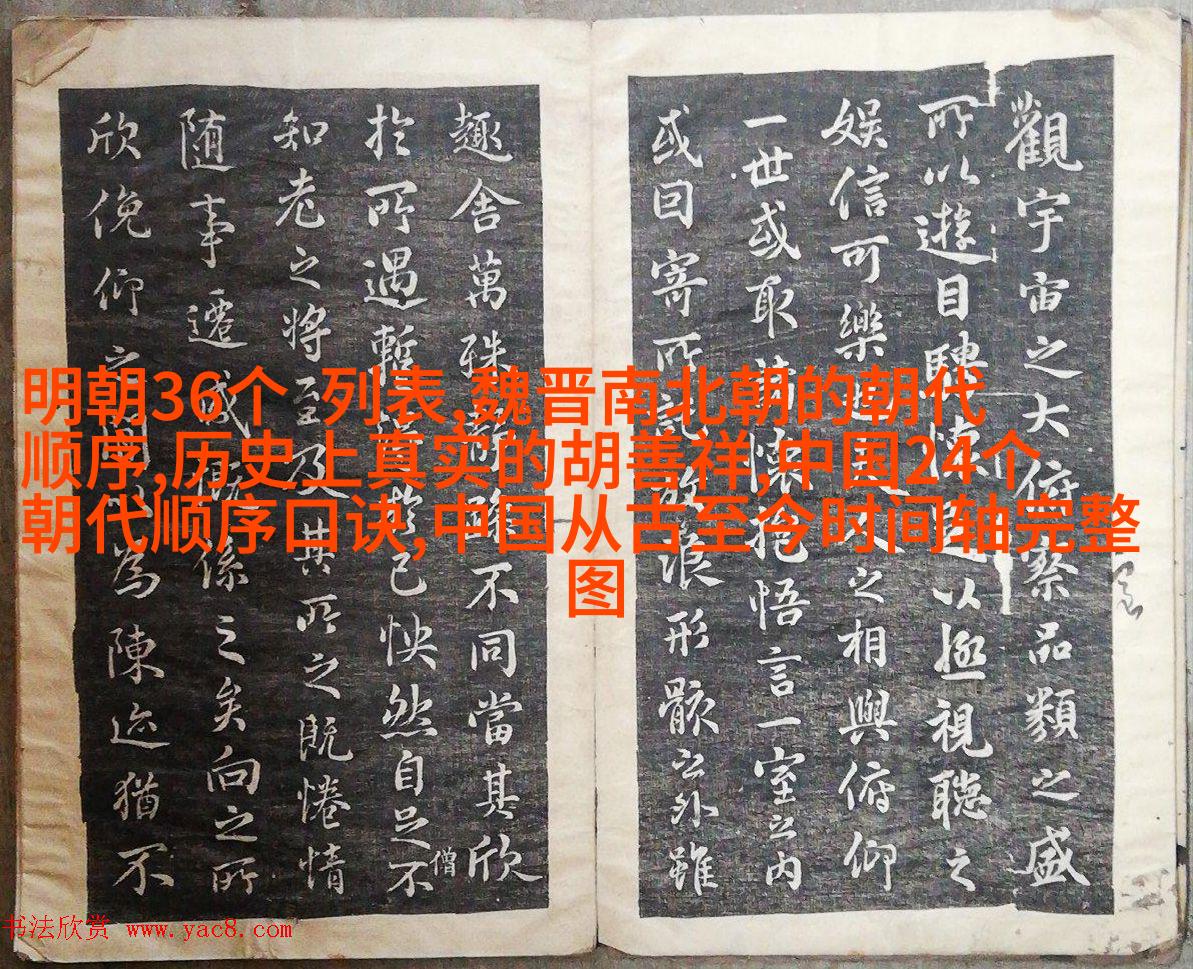 明朝36个 列表,魏晋南北朝的朝代
顺序,历史上真实的胡善祥,中国24个
朝代顺序口诀,中国从古至今时间轴完整
图
觀宇宙之大俯察品類之盛
所以遊目騁懷足以極視聽之
娛信可樂也夫人之相與俯仰
一世或取諸懷抱悟言一室之内
或因寄所託放浪形骸之外雖
趣舍萬殊静躁不同當其欣
於所遇暫得於己怏然自足不
僧
知老之將至及其所之既惓情
随事遷感慨係之矣向之所
欣俛仰之間以為陳迹猶不
书法欣赏 www.yac8.com